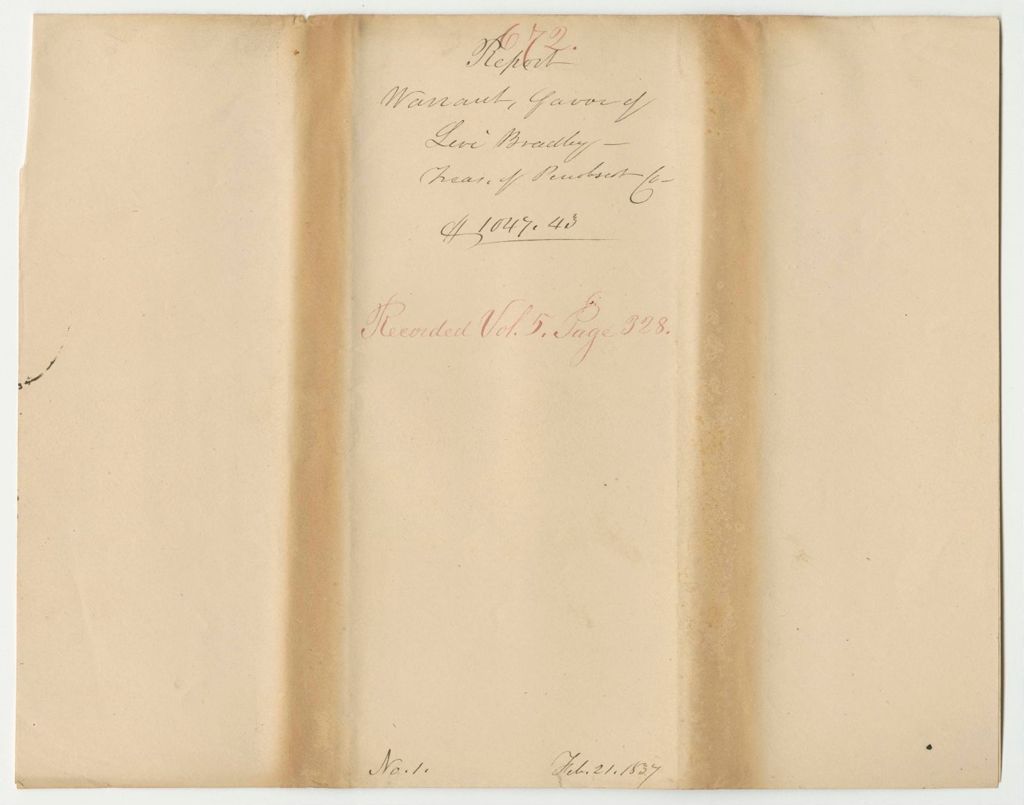 672.
Report
Warrant, favor of
Levi Bradley —
Treas. of Penobscot Co —
$1047.43
Recorded Vol. 5. Page 328.
No. 1. Feb. 21. 1837